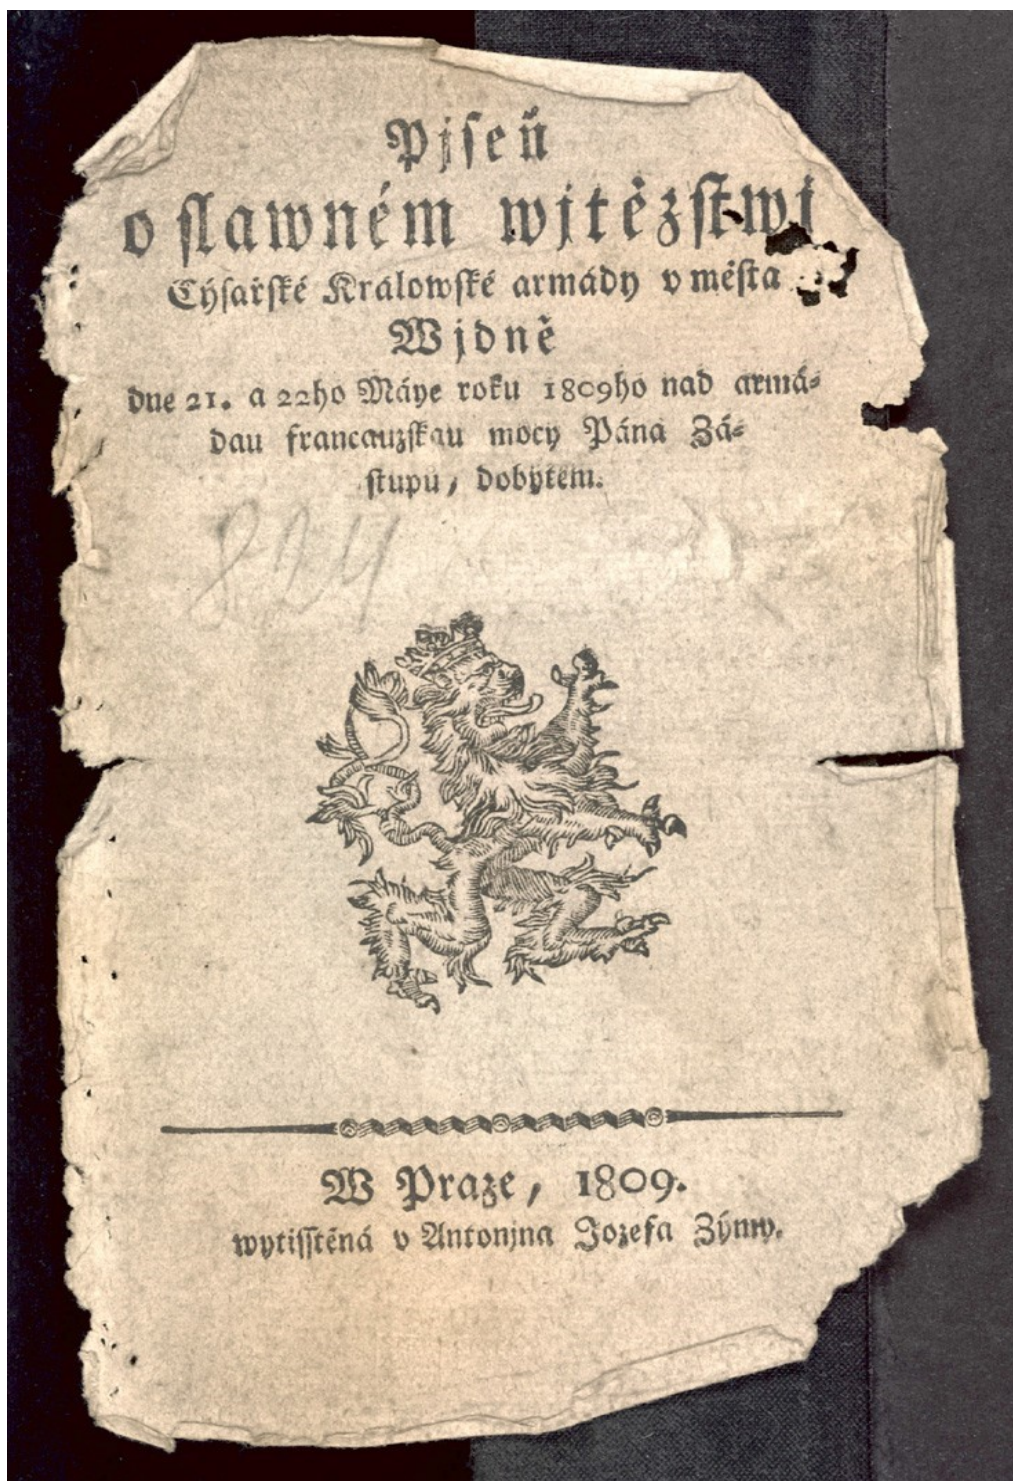 Pjseň
o slawném wjtězstwj
Cýsařské Králowské armády v města
Wjdně
dne 21. a 22ho Máye roku 1809ho nad armá=
dau francauzskau mocy Pána Zá=
stupů, dobytém.
W Praze, 1809.
wytisstěná v Antonjna Jozefa Zýmy.